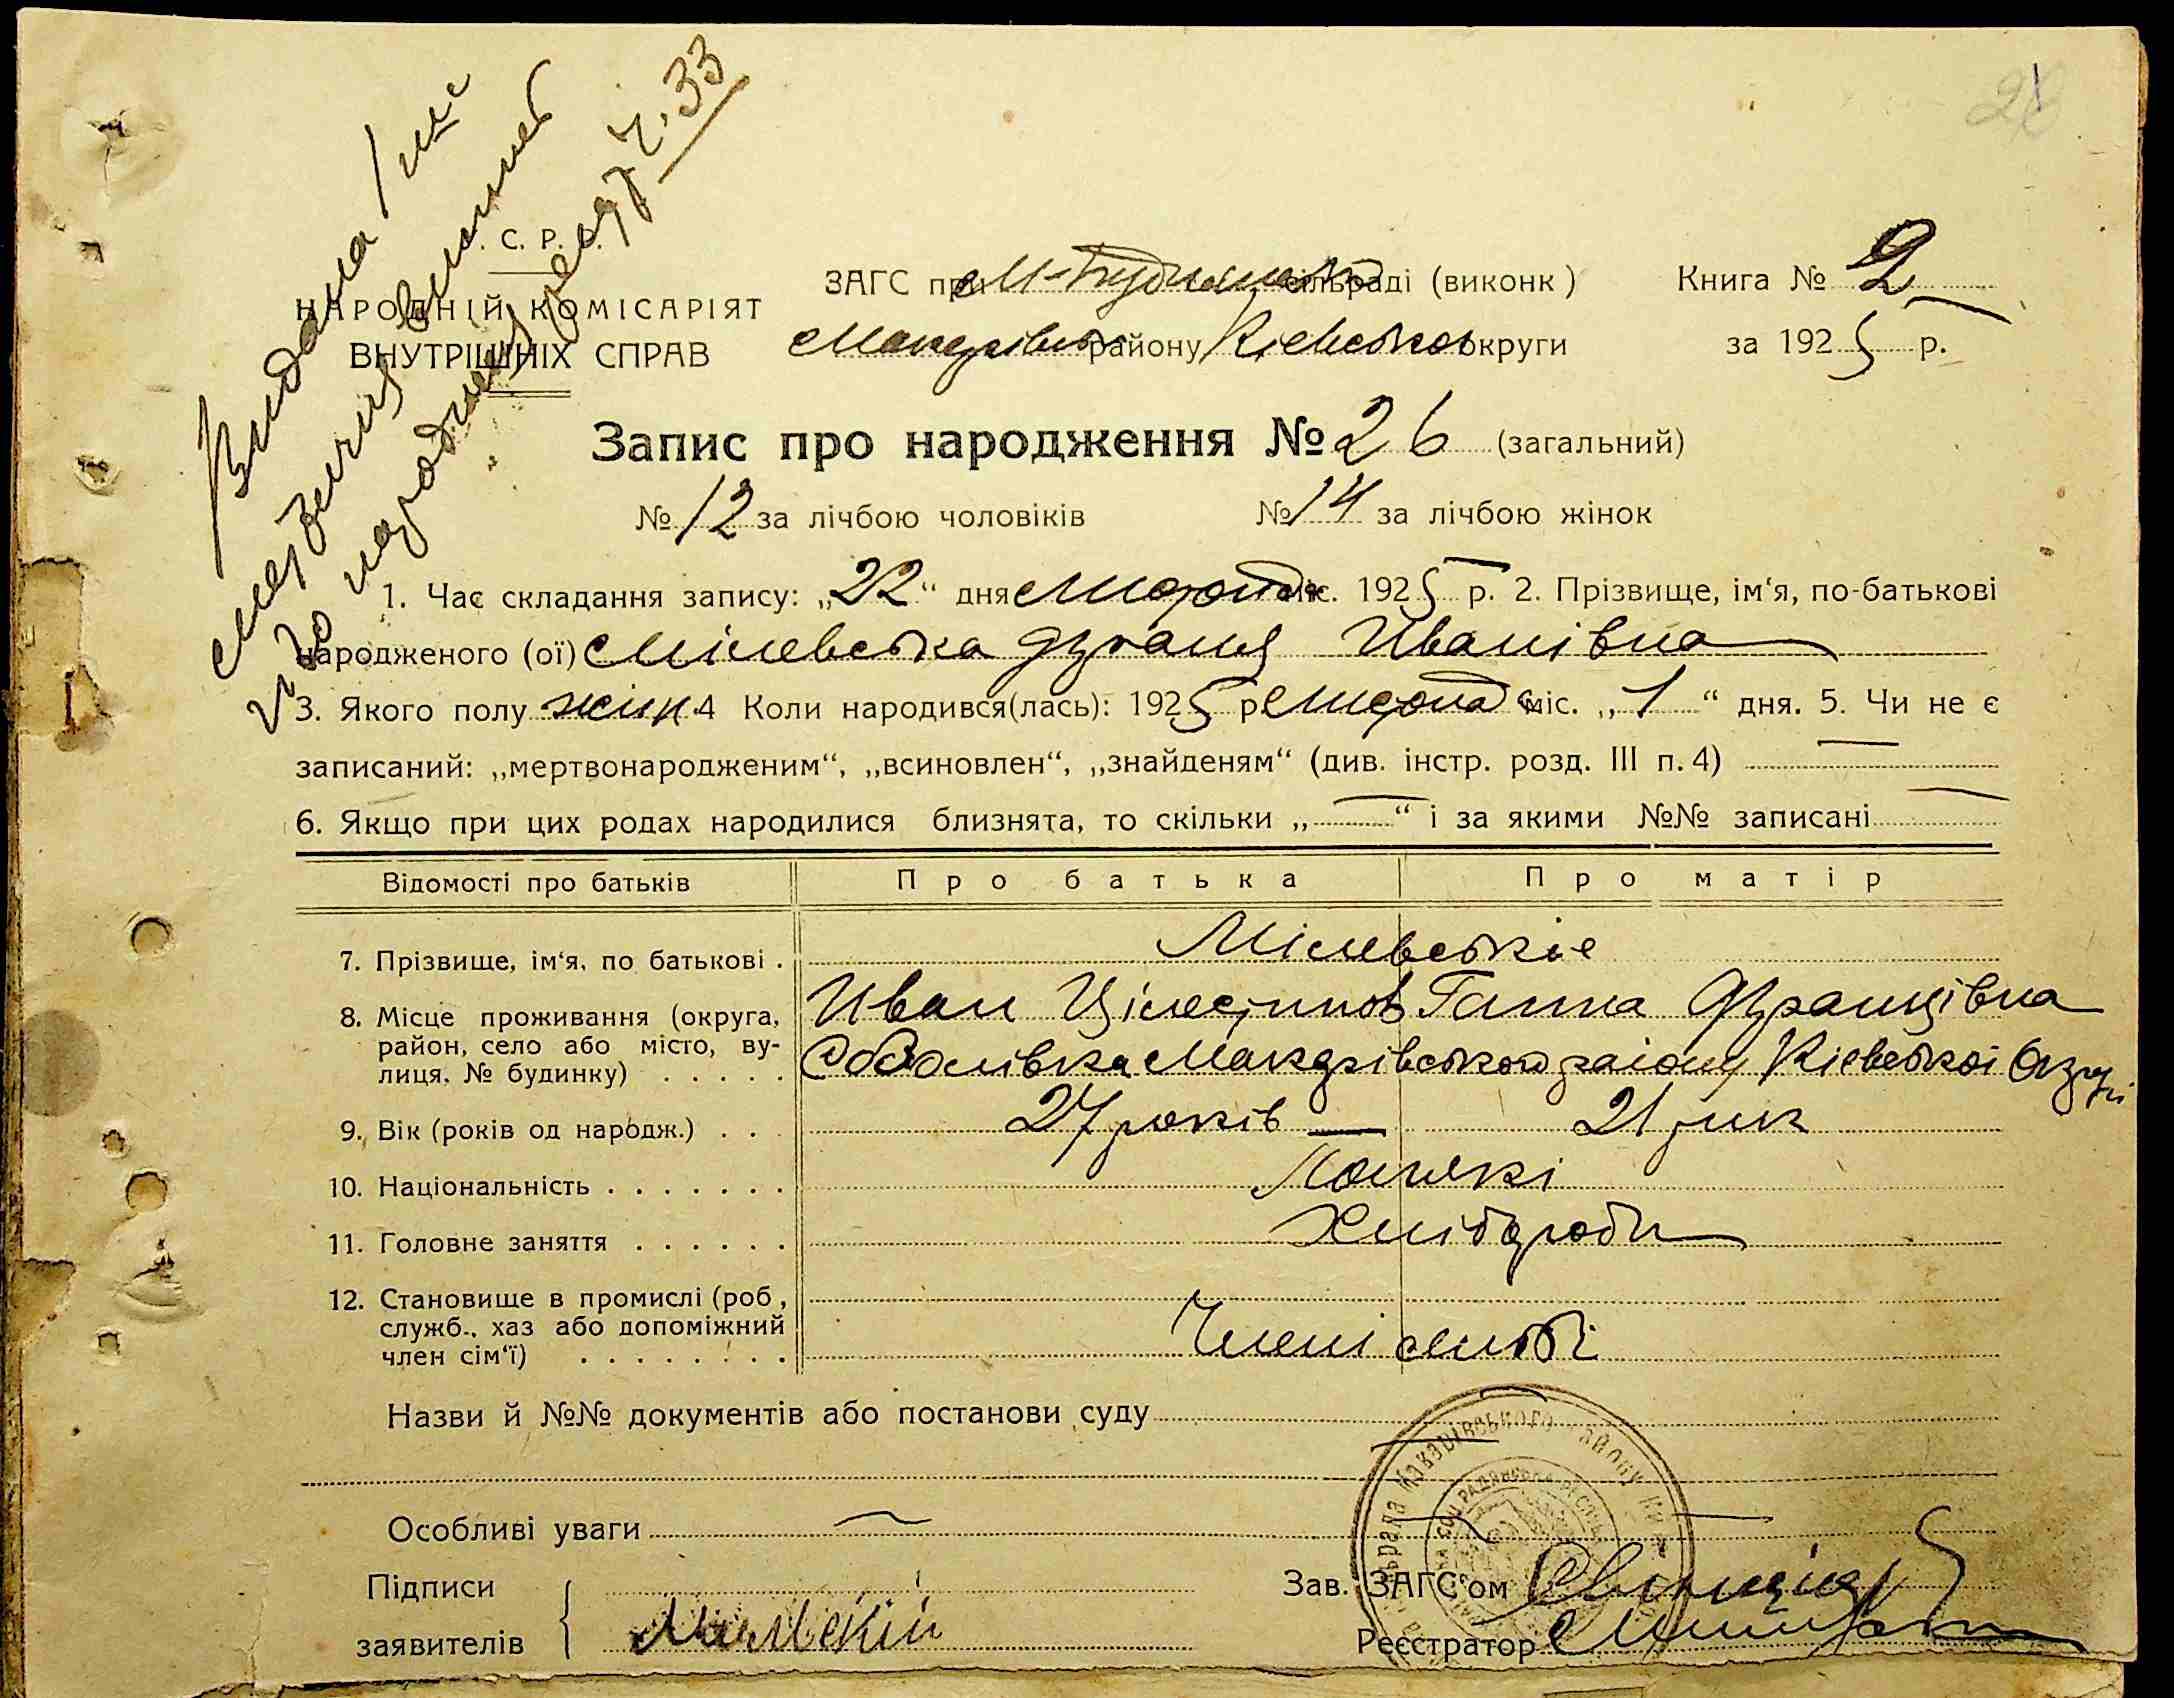 28
Видана
ч. 33
С. Р. Р.
НАРОДНІЙ КОМІСАРІЯТ
ВНУТРІШНІХ СПРАВ
ЗАГС при М-Будианськ сільраді (виконк)
Макарівск району Кієвської округи
Книга № 2
за 1925 р.
Запис про народження № 26 (загальний)
№ 12 за лічбою чоловіків № 14 за лічбою жінок
1. Час складання запису: „22“ дня Марта міс. 1925 р. 2. Прізвище, ім‘я, по-батькові
народженого (ої) Мілевська Франя Иванівна
3. Якого полу жін. 4 Коли народився(лась): 1925 р Марта міс. „1“ дня. 5. Чи не є
записаний: „мертвонародженим“, „всиновлен“, „знайденям“ (див. інстр. розд. III п. 4) —
6. Якщо при цих родах народилися близнята, то скільки „—“ і за якими №№ записані —
Відомості про батьків Про батька Про матір
7. Прізвище, ім‘я, по батькові . Мілевськіе
8. Місце проживання (округа, Иван Цілестинов Ганна Францівна
район, село або місто, ву- Соболівка Макарівського району Кієвської Округі
лиця, № будинку) . . . . .
9. Вік (років од народж.) . . 27 років — 21 рик
10. Національність . . . . . . . Полякі
11. Головне заняття . . . . . . Хлібороби
12. Становище в промислі (роб,
служб., хаз або допоміжний
член сім‘ї) . . . . . . . . Члені
Назви й №№ документів або постанови суду —
Особливі уваги —
Підписи
заявителів Милевский
Зав. ЗАГС‘ом
Реєстратор